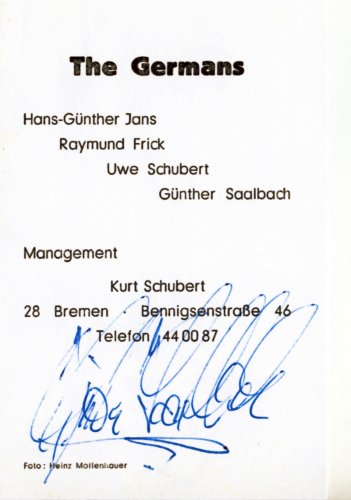 The Germans
Hans-Günther Jans
Raymund Frick
Uwe Schubert
Günther Saalbach
Management
Kurt Schubert
28 Bremen Bennigsenstraße 46
Telefon 44 00 87
Foto: Heinz Mollenhauer